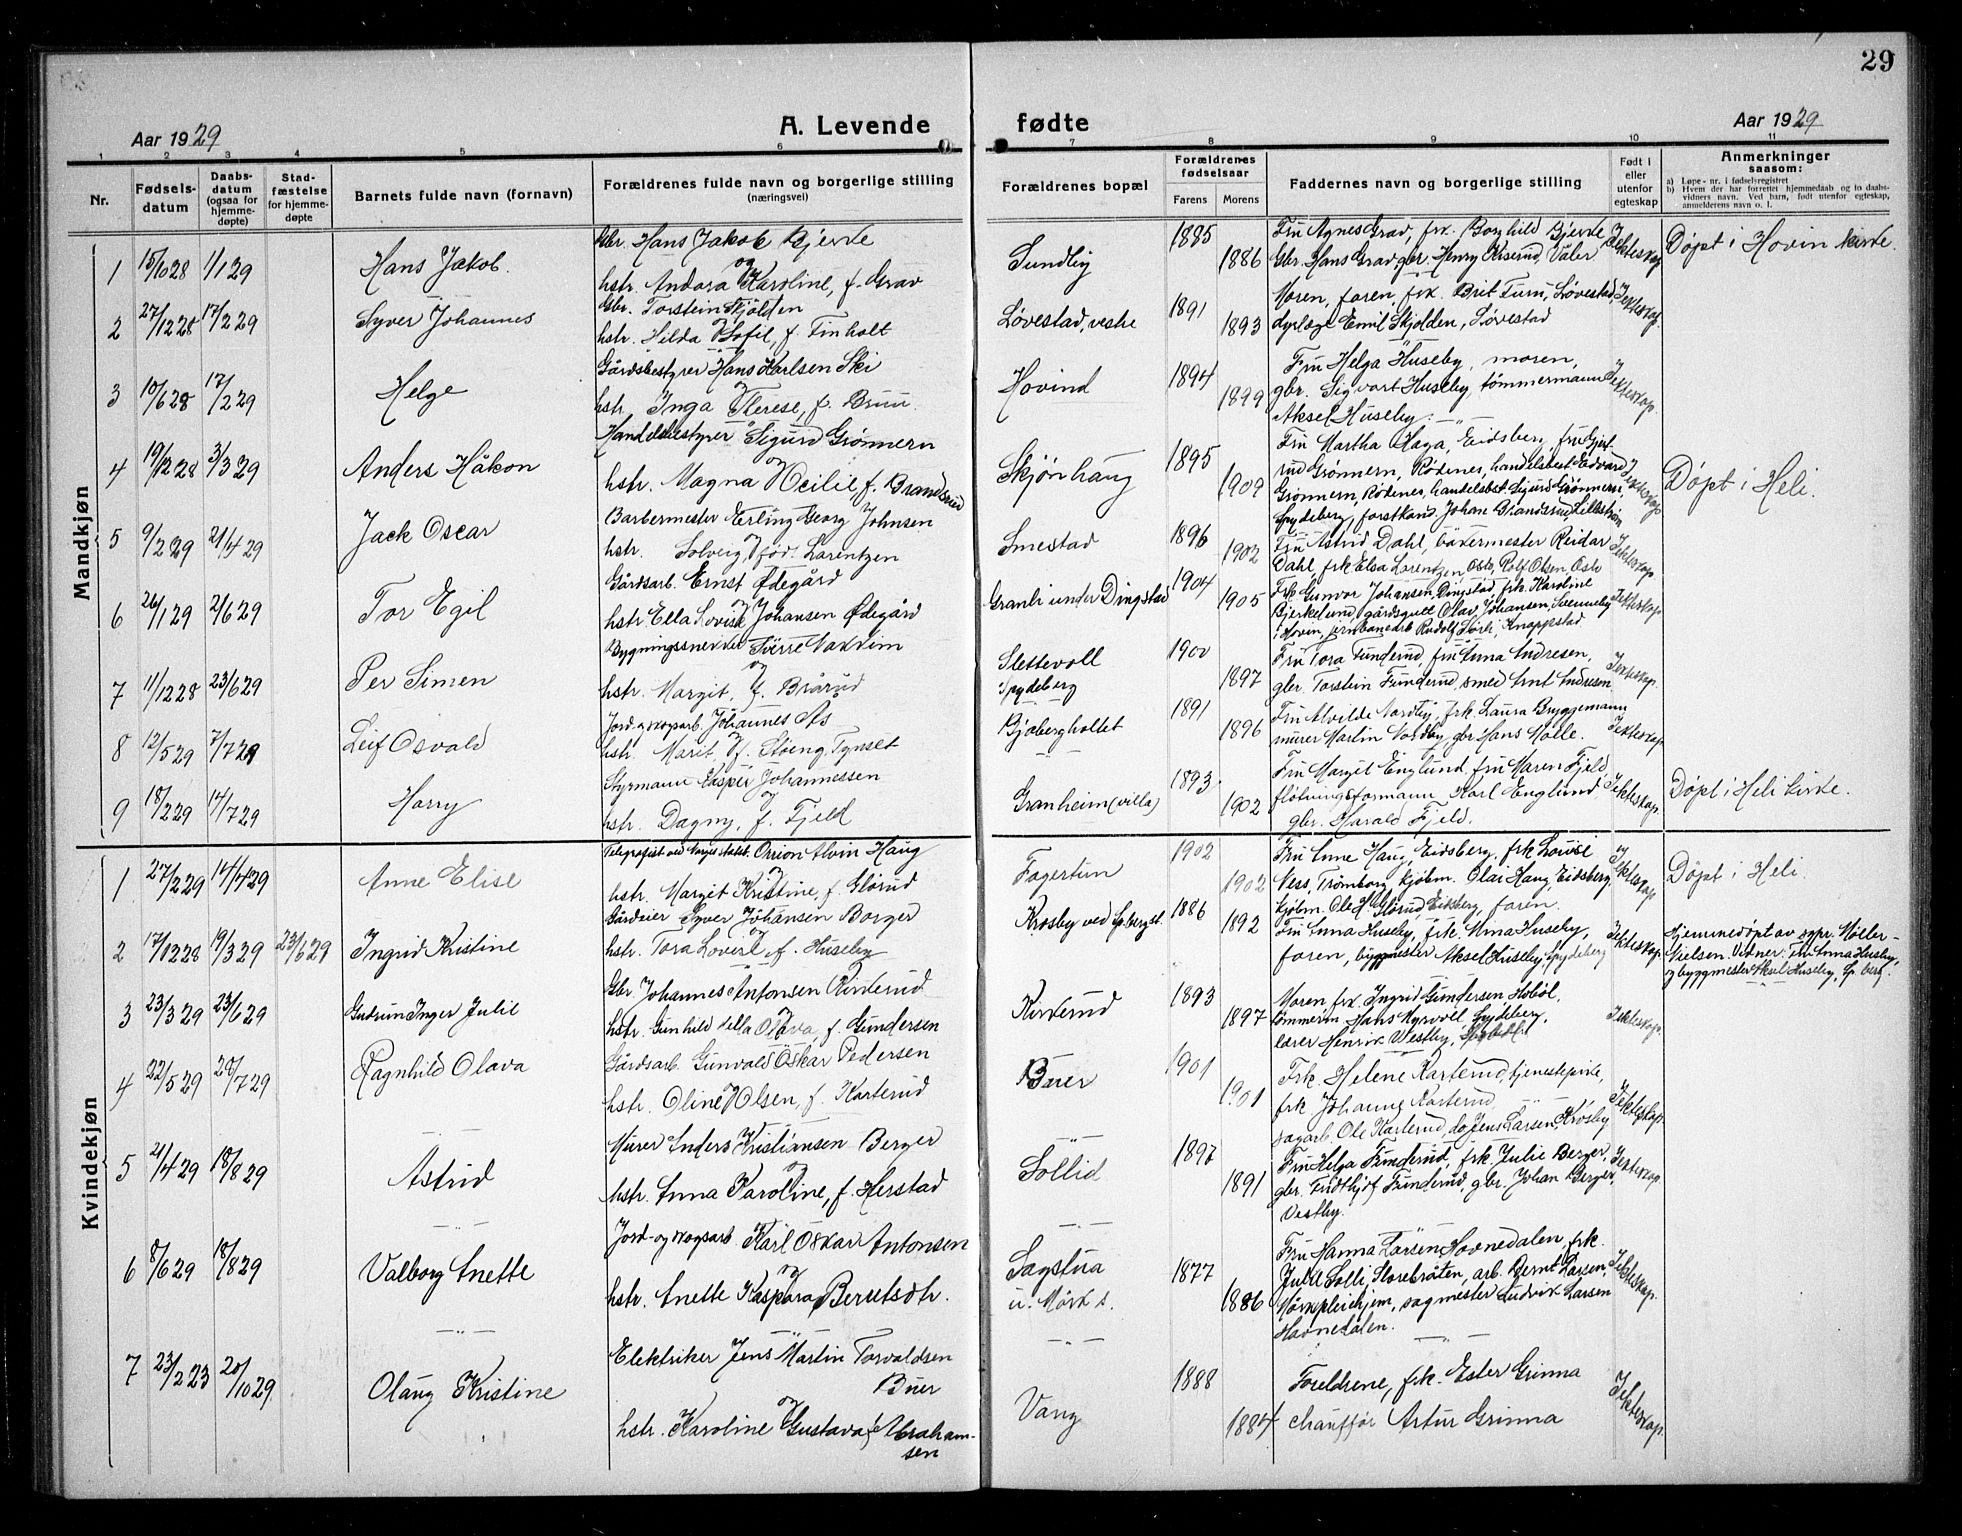 29
Aar 1929
A. Levende
fødte
Aar 1929
1 2 3 4 5 6 7 8 9 10 11
Nr.
Fødsels-
datum
Daabs-
datum
(ogsaa for
hjemme-
døpte)
Stad-
fæstelse
for hjemme-
døpte
Barnets fulde navn (fornavn)
Forældrenes fulde navn og borgerlige stilling
(næringsvei)
Forældrenes bopæl
Forældrenes
fødselsaar
Farens Morens
Faddernes navn og borgerlige stilling
Født i
eller
utenfor
egteskap
Anmerkninger
saasom:
a) Løpe-nr. i fødselsregistret
b) Hvem der har forrettet hjemmedaab og to daabs-
vidners navn. Ved barn, født utenfor egteskap,
anmelderens navn o. l.
Mandkjøn
1 15/10 28 1/1 29 Hans Jakob.
Gbr. Hans Jakob Bjerke
og
hstr. Andora Karoline, f. Grav
Sundby 1885 1886
Fru Agnes Grav, frk. Borghild Bjerke,
Gbr. Hans Grav, gbr. Henry Kiserud, Våler
I ekteskap Døpt i Hovin kirke.
2 27/12 28 17/2 29 Syver Johannes
Gbr. Torstein Skjolden
hstr. Hilda Bofil, f. Finholt
Løvestad, vestre 1891 1893
Moren, faren, frk. Brit Furu, Løvestad,
dyrlæge Emil Skjolden, Løvestad
I ekteskap.
3 10/6 28 17/2 29 Helge
Gårdsbestyrer Hans Karlsen Ski
hstr. Inga Therese, f. Bruu.
Hovind 1894 1899
Fru Helga Huseby, moren,
gbr. Sigvart Huseby, tømmermann
Aksel Huseby. -"-
I ekteskap.
4 19/12 28 3/3 29 Anders Håkon
Handelsbestyrer Sigurd Grønnern
og
hstr. Magna Cecilie, f. Brandsrud
Skjønhaug 1895 1909
Fru Martha Haga, Eidsberg, fru Gjert-
rud Grønnern, Rødenes, handelsbest. Edvard
Grønnern, Rødenes, handelsbst. Sigurd Grønnern,
Spydeberg, forstkand. Johan Brandsrud, Lillestrøm
I ekteskap Døpt i Heli.
5 9/2 29 21/4 29 Jack Oscar
Barbermester Erling Georg Johnsen
hstr. Solveig, fød. Larentzen
Smestad 1896 1902
Fru Astrid Dahl, bakermester Reidar
Dahl, frk Elsa Lorentzen, Oslo, Rolf Olsen, Oslo
I ekteskap
6 26/1 29 2/6 29 Tor Egil
Gårdsarb. Ernst Ødegård
og
hstr. Ella Lovise Johansen Ødegård
Granli under Dingstad 1904 1905
Frk. Gunvor Johansen, Dingstad, frk. Karoline
Bjerkelund, gårdsgutt Olav Johansen, Svenneby
i Hovin, jernbanearb. Rudolf Sørli, Knappstad
I ekteskap.
7 11/12 28 23/6 29 Per Simen
Bygningssnekker Sverre Vakkim
og
hstr. Margit, f. Brårud
Slettevoll
Spydeberg
1900 1897
Fru Tora Funderud, fru Anna Andresen,
gbr. Torstein Funderud, smed Arnt Andresen
I ekteskap.
8 12/5 29 7/7 29 Leif Osvald
Jord- og skogsarb. Johannes As
hstr. Marit, f. Støeng, Tynset
Bjøberghollet
-"-
1891 1896
Fru Alvilde Nordby, frk. Laura Bryggemann
murer Martin Nordby, gbr Hans Mølle.
I ekteskap.
9 18/2 29 14/7 29 Harry
Styrmann Kasper Johannessen
og
hstr. Dagny, f. Fjeld
Granheim (villa) 1893 1902
Fru Margit Englund, fru Maren Fjeld,
fløtningsformann Karl Englund,
gbr. Harald Fjeld.
I ekteskap. Døpt i Heli kirke.
Kvindekjøn
1 27/2 29 14/4 29 Anne Elise
Telegrafist ved Norges statsb. Orrion Alvin Haug
og
hstr. Margit Kristine, f. Glørud
Fagertun 1902 1902
Fru Anne Haug, Eidsberg, frk Lovise
Ness, Trømborg, kjøbm. Olai Haug, Eidsberg,
kjøbm. Ole H. Glørud, Eidsberg, faren.
I ekteskap Døpt i Heli.
2 17/12 28 19/3 29 23/6 29 Ingrid Kristine
Gårdeier Syver Johansen Borger
og
hstr. Tora Lovise, f. Huseby
Krosby ved Sp.berg st. 1886 1892
Fru Anna Huseby, frk. Anna Huseby,
faren, byggmester Aksel Huseby, Spydeberg
I ekteskap.
Hjemmedøpt av sgpr. Møller-
Nielsen. Vidner: Fru Anna Huseby,
og byggmester Aksel Huseby, Sp.berg.
3 23/3 29 23/6 29 Gudrun Inger Julie
Gbr. Johannes Antonsen Kinderud
og
hstr. Gunhild Della Olava, f. Gundersen
Kinderud 1893 1897
Moren, frk. Ingrid Gundersen Hobøl,
tømmerm. Hans Myrvoll, Spydeberg,
lærer Henrik Westby,
I ekteskap.
4 22/5 29 20/7 29 Ragnhild Olava
Gårdsarb. Gunvald Oskar Pedersen
hstr. Oline Olsen, f. Karterud
Buer 1901 1901
Frk. Helene Karterud, tjenestepike,
frk Johanne Karterud,
sagarb. Ole Karterud, do Jens Larsen Krosby
I ekteskap.
5 21/4 29 18/8 29 Astrid
Murer Anders Kristiansen Berger
og
hstr. Anna Karoline, f. Herstad
Sollid 1897 1891
Fru Helga Funderud, frk. Julie Berger,
gbr. Fridthjof Funderud, gbr. Johan Berger,
Vestby.
I ekteskap
6 8/6 29 18/8 29 Valborg Anette
Jord- og skogsarb. Karl Oskar Antonsen
og
hstr. Anette Kaspara Berntsdtr.
Sagstua
u. Mørk s.
1877 1886
Fru Hanna Larsen, Hovnedalen, frk.
Julie Solli, Storebråten, arb. Bernt Larsen,
Mørk pleiehjem, sagmester Ludvik Larsen
Havnedalen.
I ekteskap.
7 23/2 23 20/10 29 Olaug Kristine
Elektriker Jens Martin Torvaldsen
Buer
og
hstr. Karoline Gustava, f. Abraham-
sen
Vang 1888 1884
Foreldrene, frk. Ester Grinna
chauffør Artur Grinna
I ekteskap.